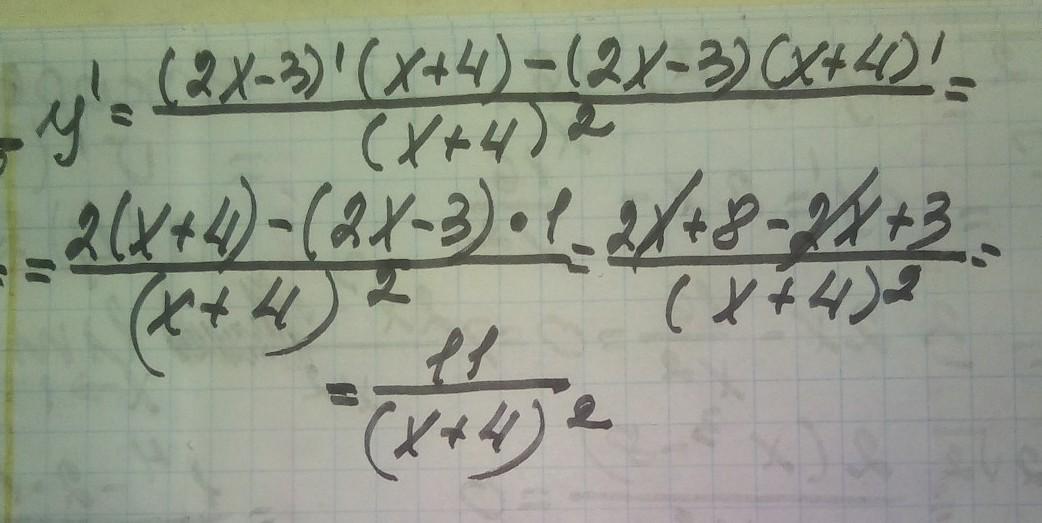 y' = \frac{(2x-3)'(x+4)-(2x-3)(x+4)'}{(x+4)^2} =
= \frac{2(x+4)-(2x-3)·1}{(x+4)^2} = \frac{2x+8-2x+3}{(x+4)^2} =
= \frac{11}{(x+4)^2}